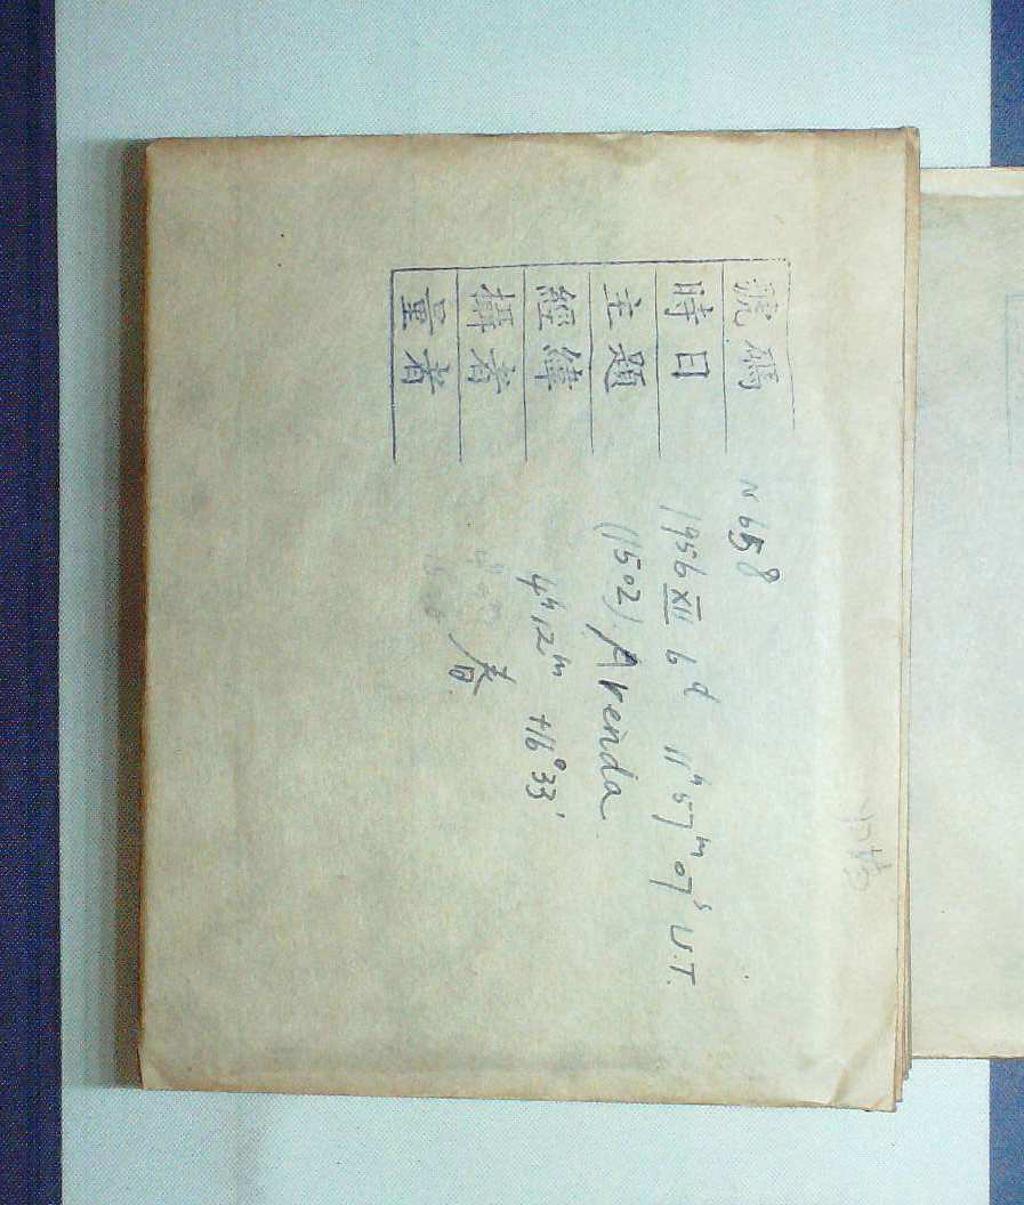 號碼 N658
時日 1956 XII 6d 11h 57m 07s U.T.
主題 (1502) Arenda
經緯 4h 12m +16°33'
攝者 春
量者